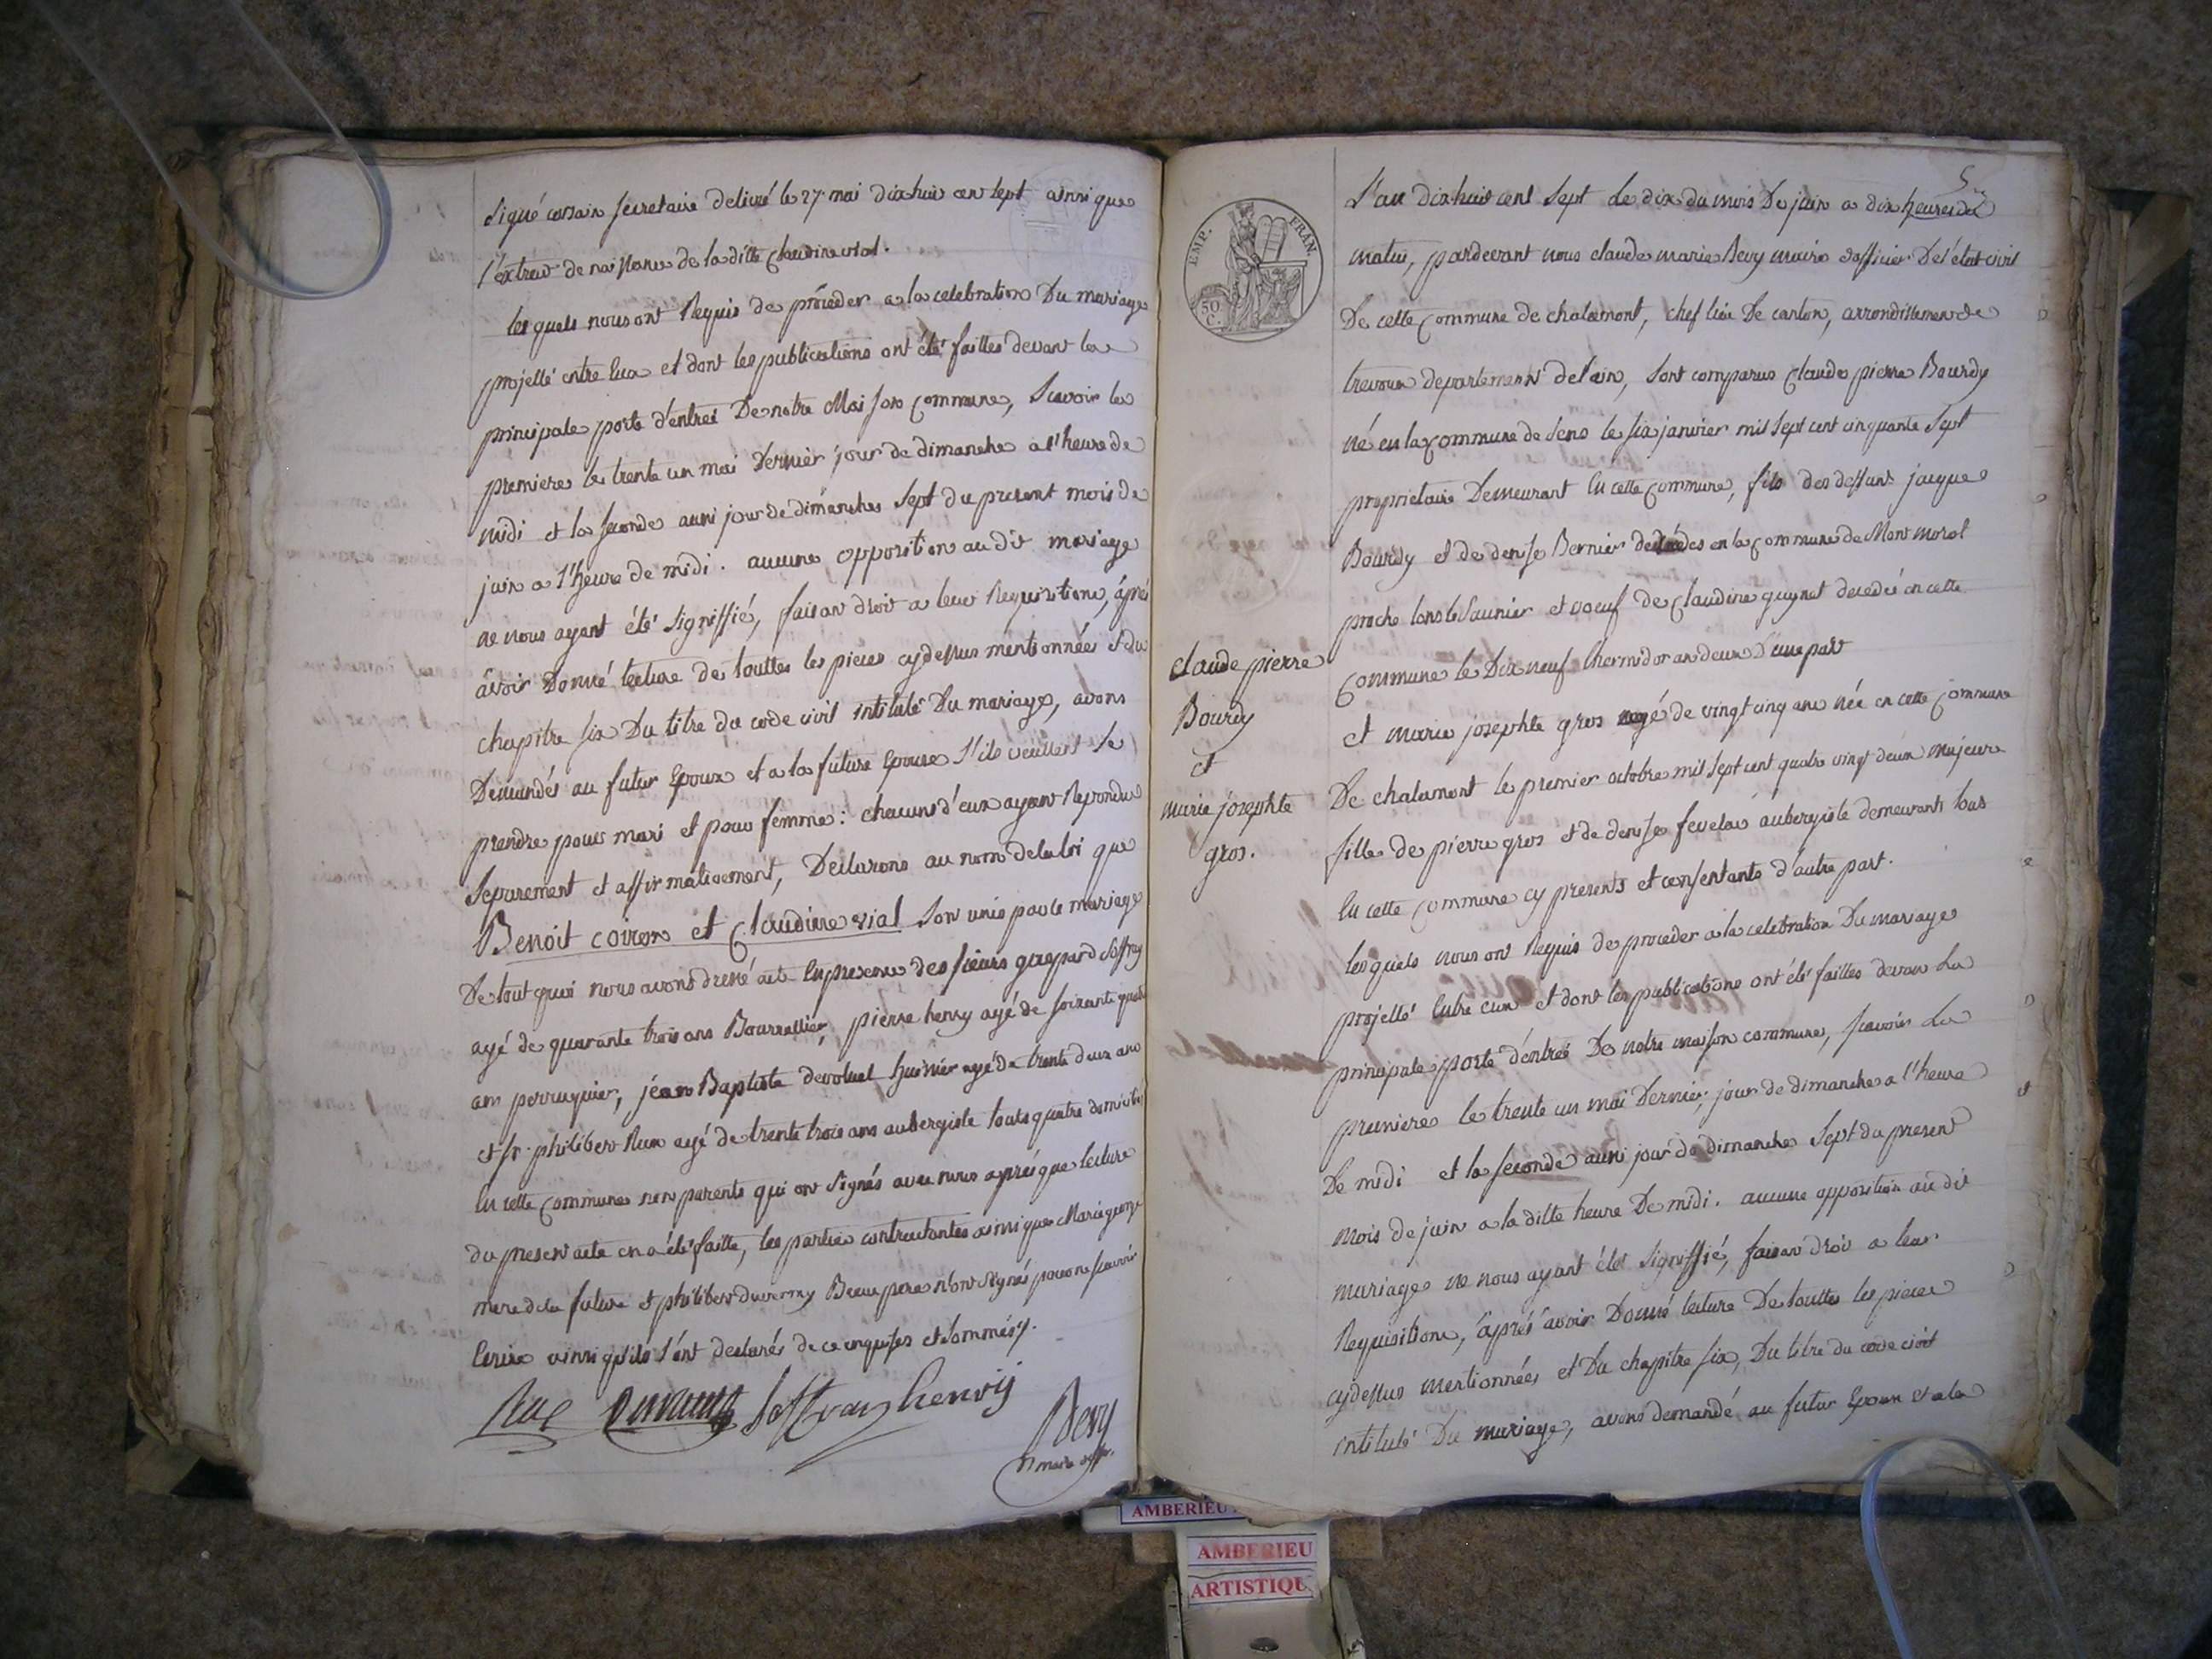 signé cersain secretaire delivré le 27 mai dix huit cent sept ainsi que
l'extrait de naissance de la ditte Claudine vial.
les quels nous ont Requis de procéder a la celebration Du mariage
projetté entre Eux et dont les publications ont été faittes devant la
principale porte d'entreé De notre Maison commune, Scavoir la
premiere le trente un mai Dernier jour de dimanche a l'heure de
midi et la seconde aussi jour de dimanche sept du present mois de
juin a l'heure de midi. aucune opposition au dit mariage
ne nous ayant été signiffié, faisant droit a leur Requisitions, aprés
avoir Donné lecture de touttes les pieces cydessus mentionnées et du
chapitre six Du titre du code civil intitulé Du mariage, avons
Demandés au futur Epoux et a la future Epouse s'ils veullent se
prendre pour mari et pour femme: chacuns d'eux ayant Repondus
Separement et affirmativement, Declarons au nom de la loi que
Benoit coiron et Claudine vial Sont unis par le mariage
De tout quoi nous avons dressé acte En presence des sieurs gaspard Soffray
agé de quarante trois ans Bourrellier, pierre henry agé de soixante quatre
ans perruquier, jean Baptiste devoluet huissier agé de trente deux ans
et sr. philibert Rue agé de trente trois ans aubergiste touts quatre domiciliés
En cette Commune non parents qui ont signés avec nous aprés que lecture
du present acte en a été faitte, les parties contractantes ainsi que Marie
mere de la future et philibert duvernay Beau pere n'ont signés pour ne scavoir
Ecrire ainsi qu'ils l'ont declarés de ce enquises et sommés.
Rue Soffray henrij
Bevy
maire
5
L'an dix huit cent sept le dix du mois De juin a dix heures du
matin, pardevant nous claude marie Bevy maire & officier De l'état civil
De cette Commune de chalamont, chef lieu De canton, arrondissement de
trevoux departement de l'ain, sont comparus Claude pierre Bourdy
né en la Commune de Sens le six janvier mil sept cent cinquante sept
proprietaire Demeurant En cette Commune, fils des deffunts jacque
Bourdy et de denise Bernier decédés en la Commune de Montmorot
proche lons le Saunier et voeuf de Claudine guynet decedeé en cette
Commune le Dix neuf thermidor an deux d'une part
et marie josephte gros agé de vingt cinq ans née en cette Commune
De chalamont le premier octobre mil sept cent quatre vingt deux majeure
fille de pierre gros et de denise fevelas aubergiste demeurants tous
En cette Commune cy presents et consentants d'autre part.
les quels nous ont Requis de proceder a la celebration Du mariage
projetté Entre eux et dont les publications ont été faittes devant La
principale porte d'entreé De notre maison commune, scavoir La
premiere le trente un mai Dernier, jour de dimanche a l'heure
De midi et la seconde aussi jour de dimanche sept du present
mois de juin a la ditte heure De midi. aucune opposition au dit
mariage ne nous ayant été signiffié, faisant droit a leur
Requisitions, aprés avoir Donné lecture De touttes les pieces
cydessus mentionnées et Du chapitre six, Du titre du code civil
intitulé Du mariage, avons demandé au futur Epoux et a la
EMP. FRAN.
50 C.
Claude pierre
Bourdy
et
marie josephte
gros.
AMBERIEU
AMBERIEU
ARTISTIQU